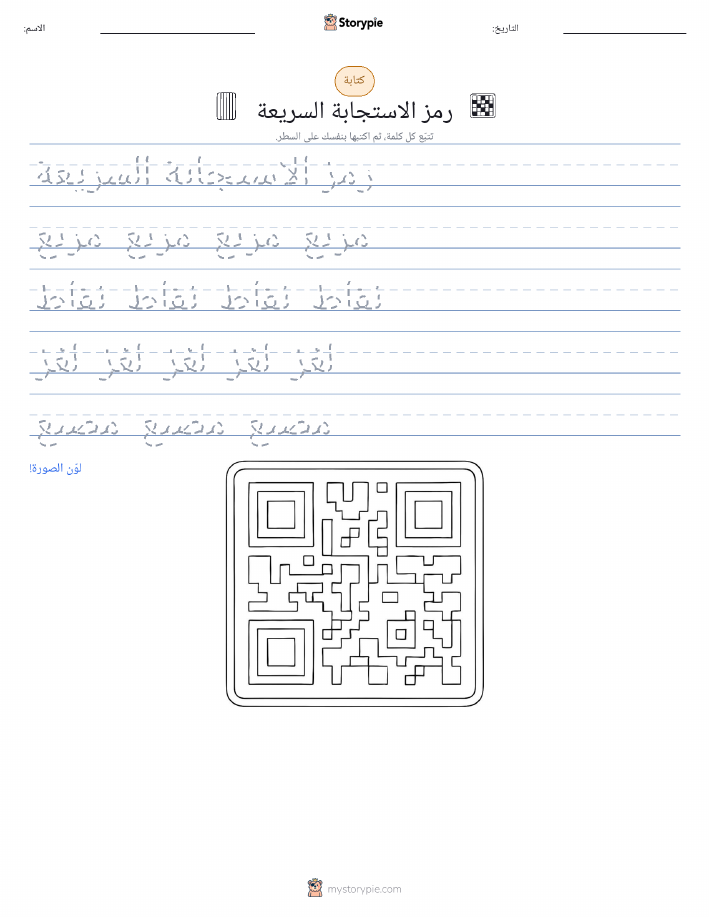 الاسم:
Storypie
التاريخ:
كتابة
رمز الاستجابة السريعة
تتبّع كل كلمة، ثم اكتبها بنفسك على السطر.
رمز الاستجابة السريعة
مربع مربع مربع مربع
نقاط نقاط نقاط نقاط
لغز لغز لغز لغز لغز
مسح مسح مسح
لوّن الصورة!
mystorypie.com